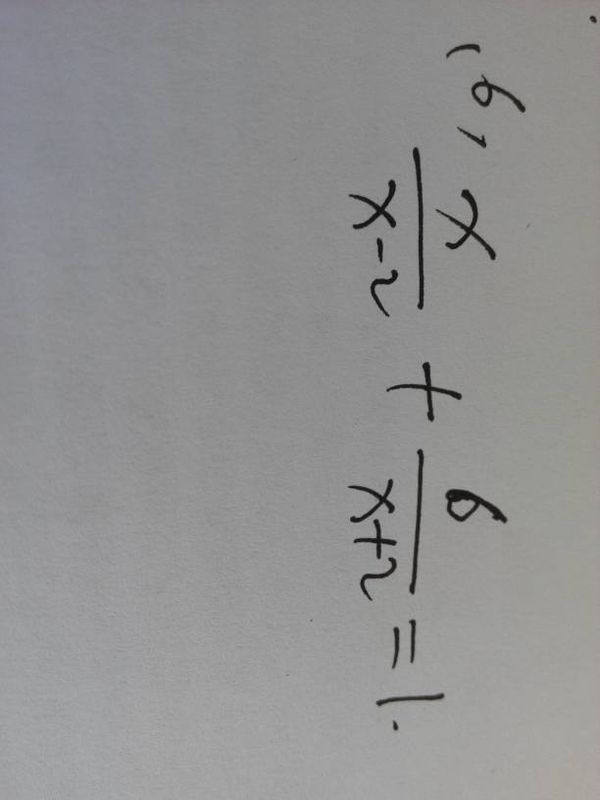 16, x/(x-2) + 6/(x+2) = 1.